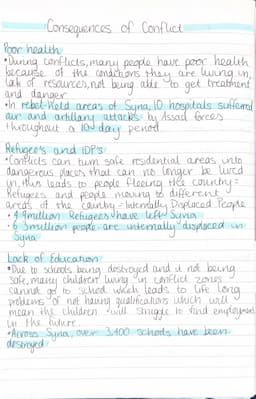 Consequences of Conflict
Poor health
•During conflicts, many people have poor health
because of the conditions they are living in,
lack of resources, not being able to get treatment
and danger.
•In rebel-held areas of Syria, 10 hospitals suffered
air and artillary attacks by Assad forces
throughout a 10 day period
Refugee's and IDP's
•Conflicts can turn safe residential areas into
dangerous places that can no longer be lived
in, this leads to people fleeing the country=
Refugees and people moving to different
areas of the country = Internally Displaced People
•4.9million Refugees have left Syria
•6.3million people are internally displaced in
Syria
Lack of Education
•Due to schools being destroyed and it not being
safe, many children living in conflict zones
cannot go to school which leads to life long
problems of not having qualifications which will
mean the children will struggle to find employment
in the future.
•Across Syria, over 3,400 schools have been
destroyed.